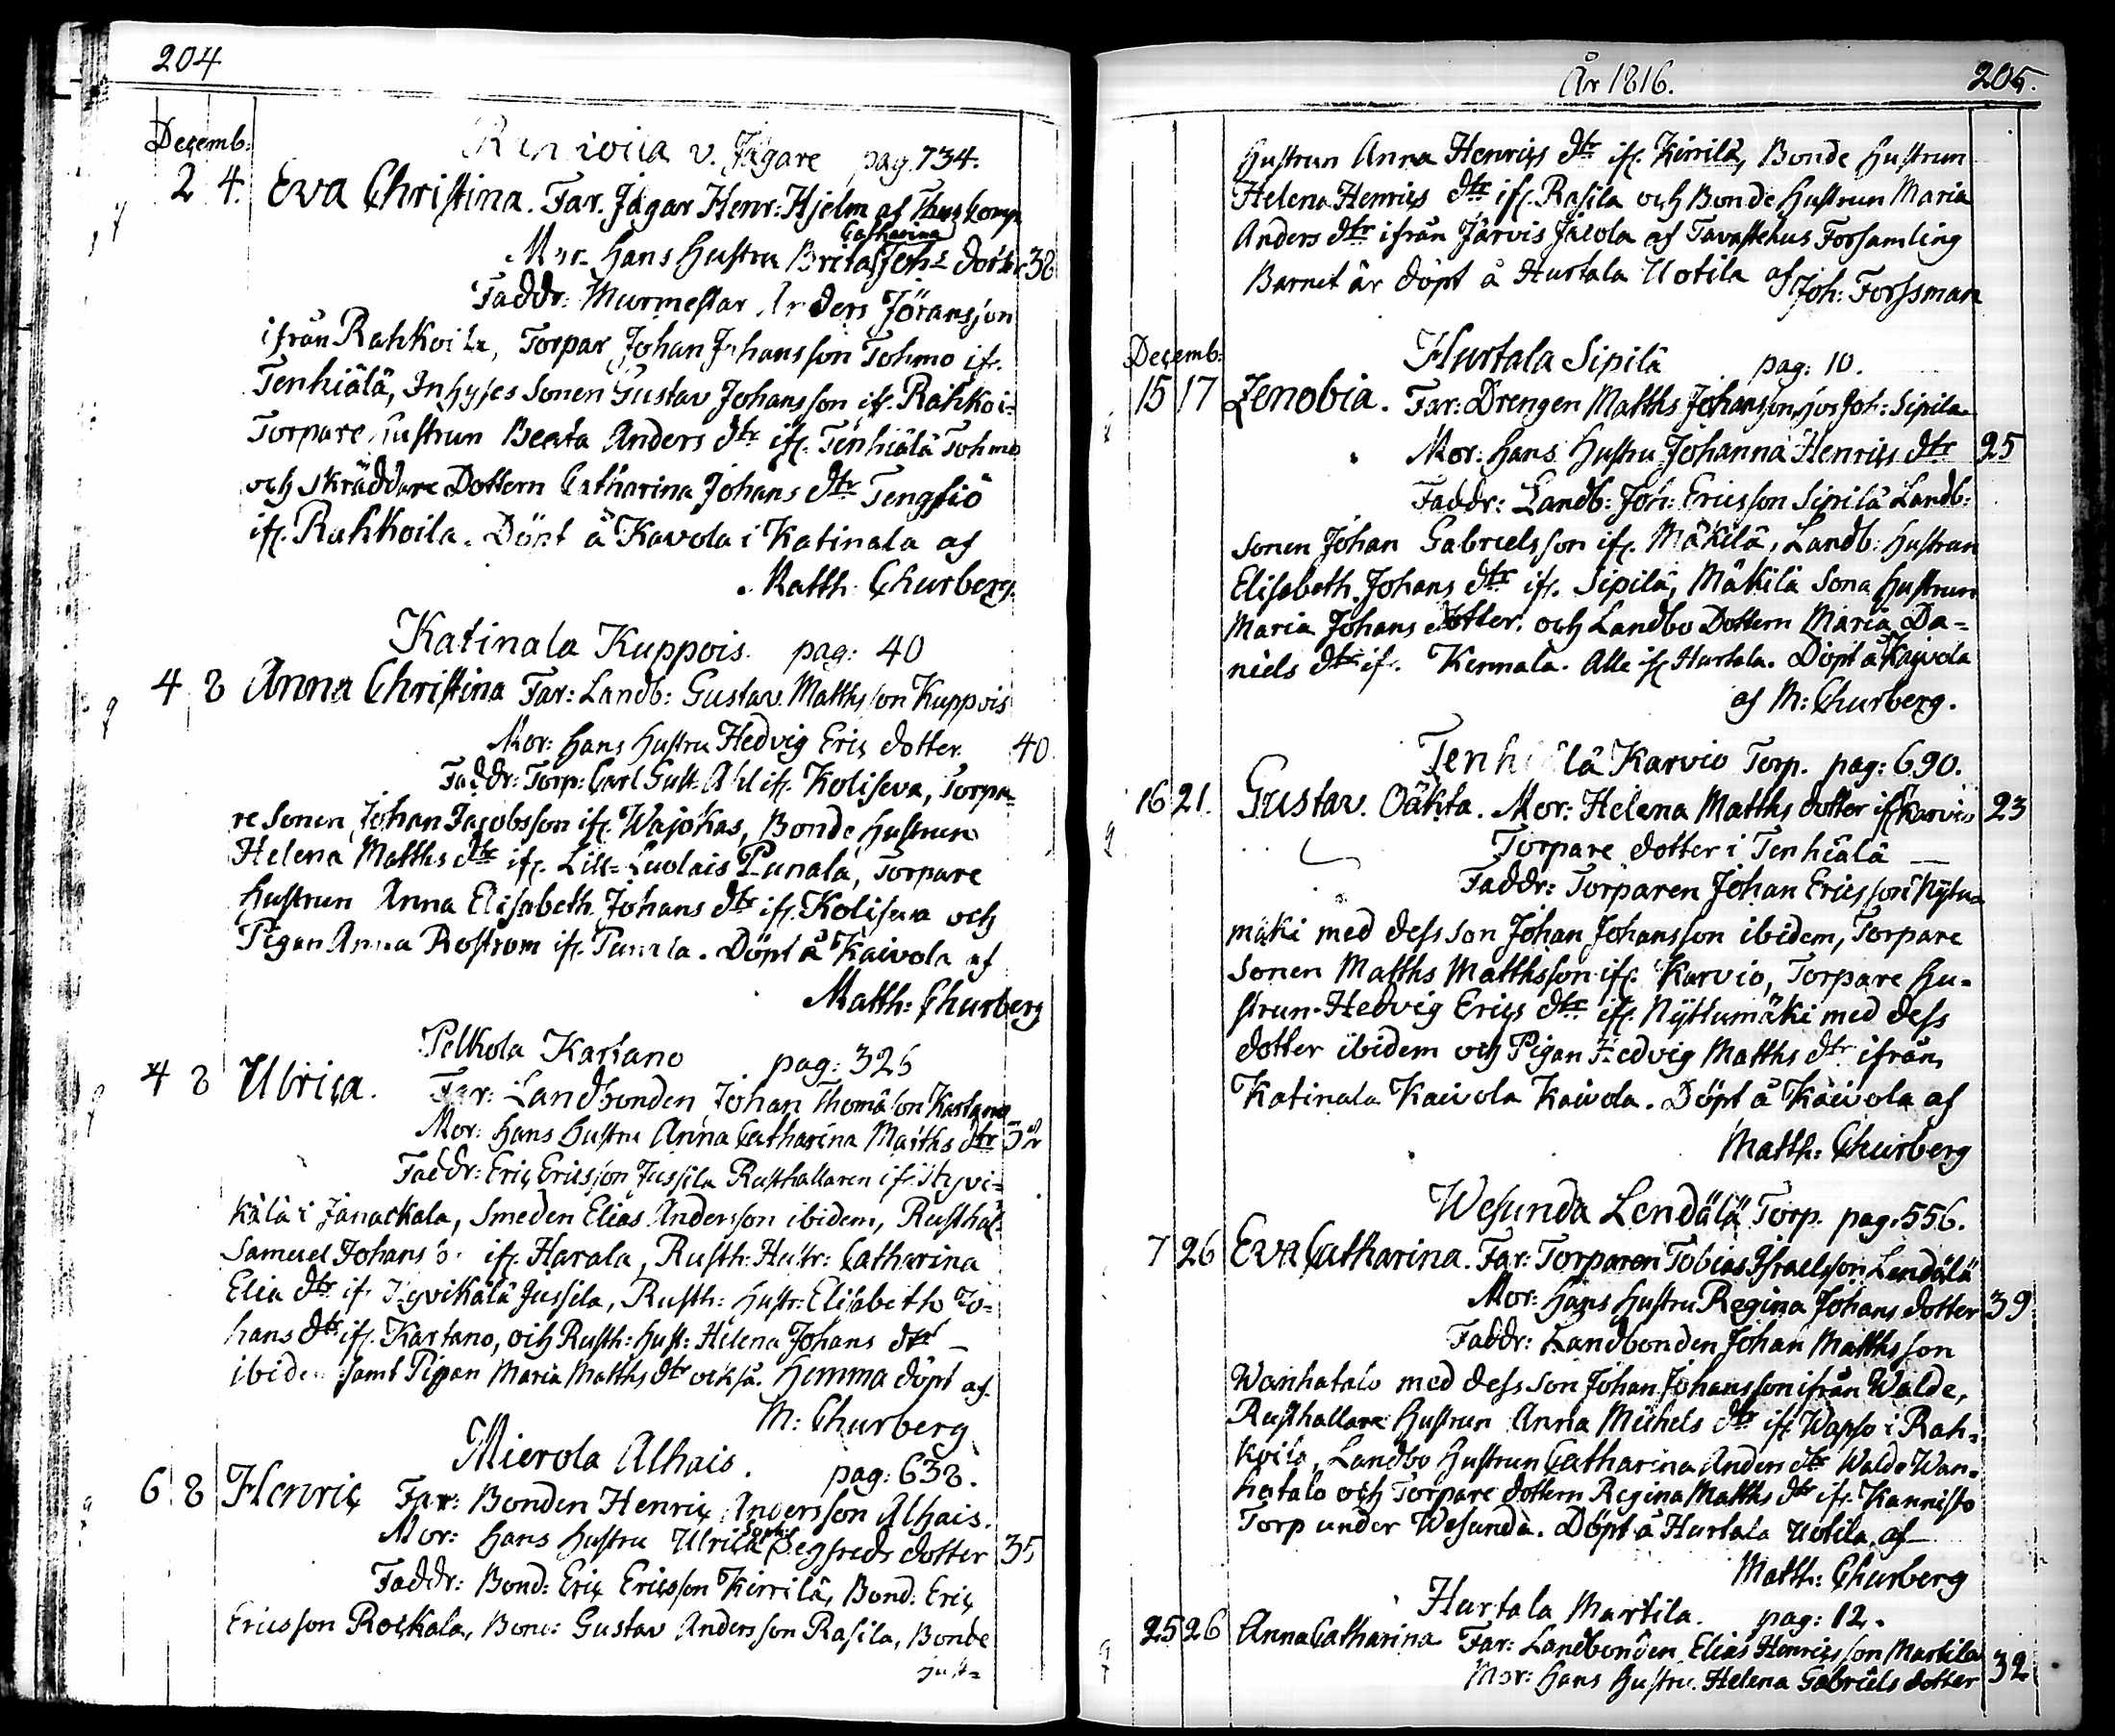 204
Decemb:
v. Jägare pag. 734.
2 4. Eva Christina. Far. Jägar Henr: Hjelm af Comp
Catharina
Mor. hans Hustru Brita Joh:s dotter 38
Faddr: Murmestar Anders Jöransson
ifrån Rahkoila, Torpar Johan Johansson Tohmo if.
Tenhiälä, Inhyses Sonen Gustav Johansson if. Rahkoi-
Torpare hustrun Beata Anders dtr if. Tenhiälä Tohmo
och Skräddare Dottern Catharina Johans dtr Tengsiö
if. Rahkoila. Döpt å Kavola i Katinala af
Matth: Churberg.
Katinala Kuppois. pag: 40
4 8 Anna Christina Far: Landb: Gustav Matthsson Kuppois
Mor: hans hustru Hedvig Eriç dotter. 40
Faddr: Torp: Carl Gust. Ahl if. Koliseva, Torpa-
re Sonen Johan Jacobsson if. Wajokas, Bonde hustrun
Helena Matths dtr if. Lill-Luolais Punala, Torpare
hustrun Anna Elisabeth Johans dtr if. Koliseva och
Pigan Anna Rostrom if. Punala. Döpt å Kaivola af
Matth: Churberg
Pelkola Kartano pag: 325
4 8 Ulriça. Far: Landbonden Johan Thomasson Kartano
Mor: hans hustru Anna Catharina Matths dtr 32
Faddr: Eriç Ericsson Jussila Rusthallaren if. Hyvi-
kälä i Janackala, Smeden Elias Andersson ibidem, Rusthål:
Samuel Johans s. if. Harala, Rusth: Hustr: Catharina
Elia dtr if. Hyvikälä Jussila, Rusth: hustr: Elisabeth Jo-
hans dtr if. Kartano, och Rusth: hust: Helena Johans dtr
ibidem samt Pigan Maria Matths dtr också. Hemma döpt af.
M: Churberg
Mierola Alhais. pag: 638.
6 8 Henriç Far: Bonden Henriç Andersson Alhais.
Mor: hans hustru Ulrica Segfreds dotter 35
Faddr: Bond: Eriç Ericsson Kirrilä, Bond: Eriç
Ericsson Rockala, Bond: Gustav Andersson Rasila, Bonde
hust=
År 1816. 205.
hustrun Anna Henriçs dtr if. Kirrilä, Bonde hustrun
Helena Henriçs dtr if. Rasila och Bonde hustrun Maria
Anders dtr ifrån Järvis Jacola af Tavastehus Forsamling
Barnet är döpt å Hurtala Uotila af Joh: Forssman
Decemb:
Hurtala Sipilä pag: 10.
15 17 Zenobia. Far: Drengen Matths Johansson hos Joh: Sipila
Mor: hans hustru Johanna Henriçs dtr 25
Faddr: Landb: Joh: Ericsson Sipilä Landb:
Sonen Johan Gabrielsson if. Mäkilä, Landb: hustrun
Elisabeth Johans dtr if. Sipilä, Mäkilä Sona hustrun
Maria Johans dotter. och Landbo Dottern Maria Da-
niels dtr if. Kennala. Alle if. Hurtala. Döpt å Kaivola
af M: Churberg.
Tenhiälä Karvio Torp. pag: 690.
16 21. Gustav. Oäkta. Mor: Helena Matths dotter if. Karvio 23
Torpare dotter i Tenhiälä
Faddr: Torparen Johan Ericsson Nytu-
mäki med dess Son Johan Johansson ibidem, Torpare
Sonen Matths Matthsson if. Karvio, Torpare hu-
strun Hedvig Eriçs dtr if. Nyttumäki med dess
dotter ibidem och Pigan Hedvig Matths dtr ifrån,
Katinala Kaivola Kaivola. Döpt å Kaivola af
Matth: Churberg
Wesunda Lendälä Torp. pag: 556.
7 26 Eva Catharina. Far: Torparen Tobias Israelsson Lendälä
Mor: hans hustru Regina Johans dotter 39
Faddr: Landbonden Johan Matthsson
Wanhatalo med dess Son Johan Johansson ifrån Walde,
Rusthallare hustrun Anna Michels dtr if. Wapso i Rah-
koila, Landbo hustrun Catharina Anders dtr Walde Wan-
hatalo och Torpare dottern Regina Matths dtr if. Kannisto
Torp under Wesunda. Döpt å Hurtala Uotila af
Matth: Churberg
Hurtala Martila. pag: 12.
25 26 Anna Catharina Far: Landbonden Elias Henriçsson Martila
Mor: hans hustru Helena Gabriels dotter 32